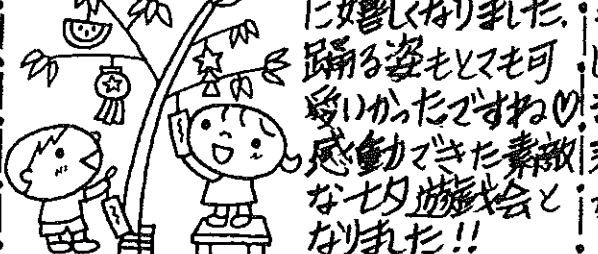 に嬉しくなりました。
踊る姿もとても可
愛いかったですね♡
感動できた素敵
な七夕遊戯会と
なりました!!